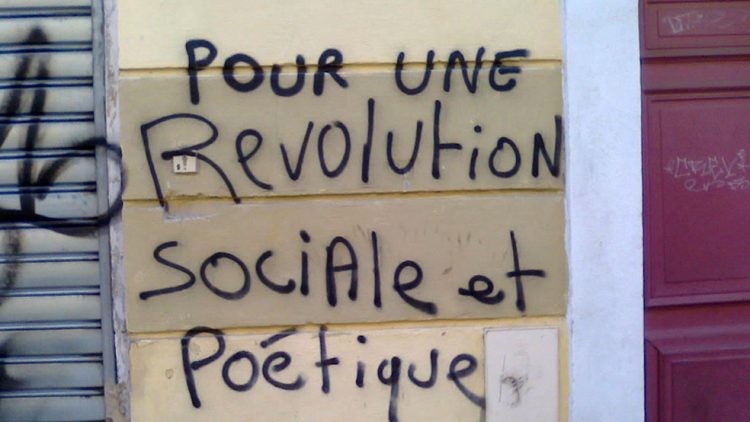 POUR UNE
Revolution
sociAle et
Poétique